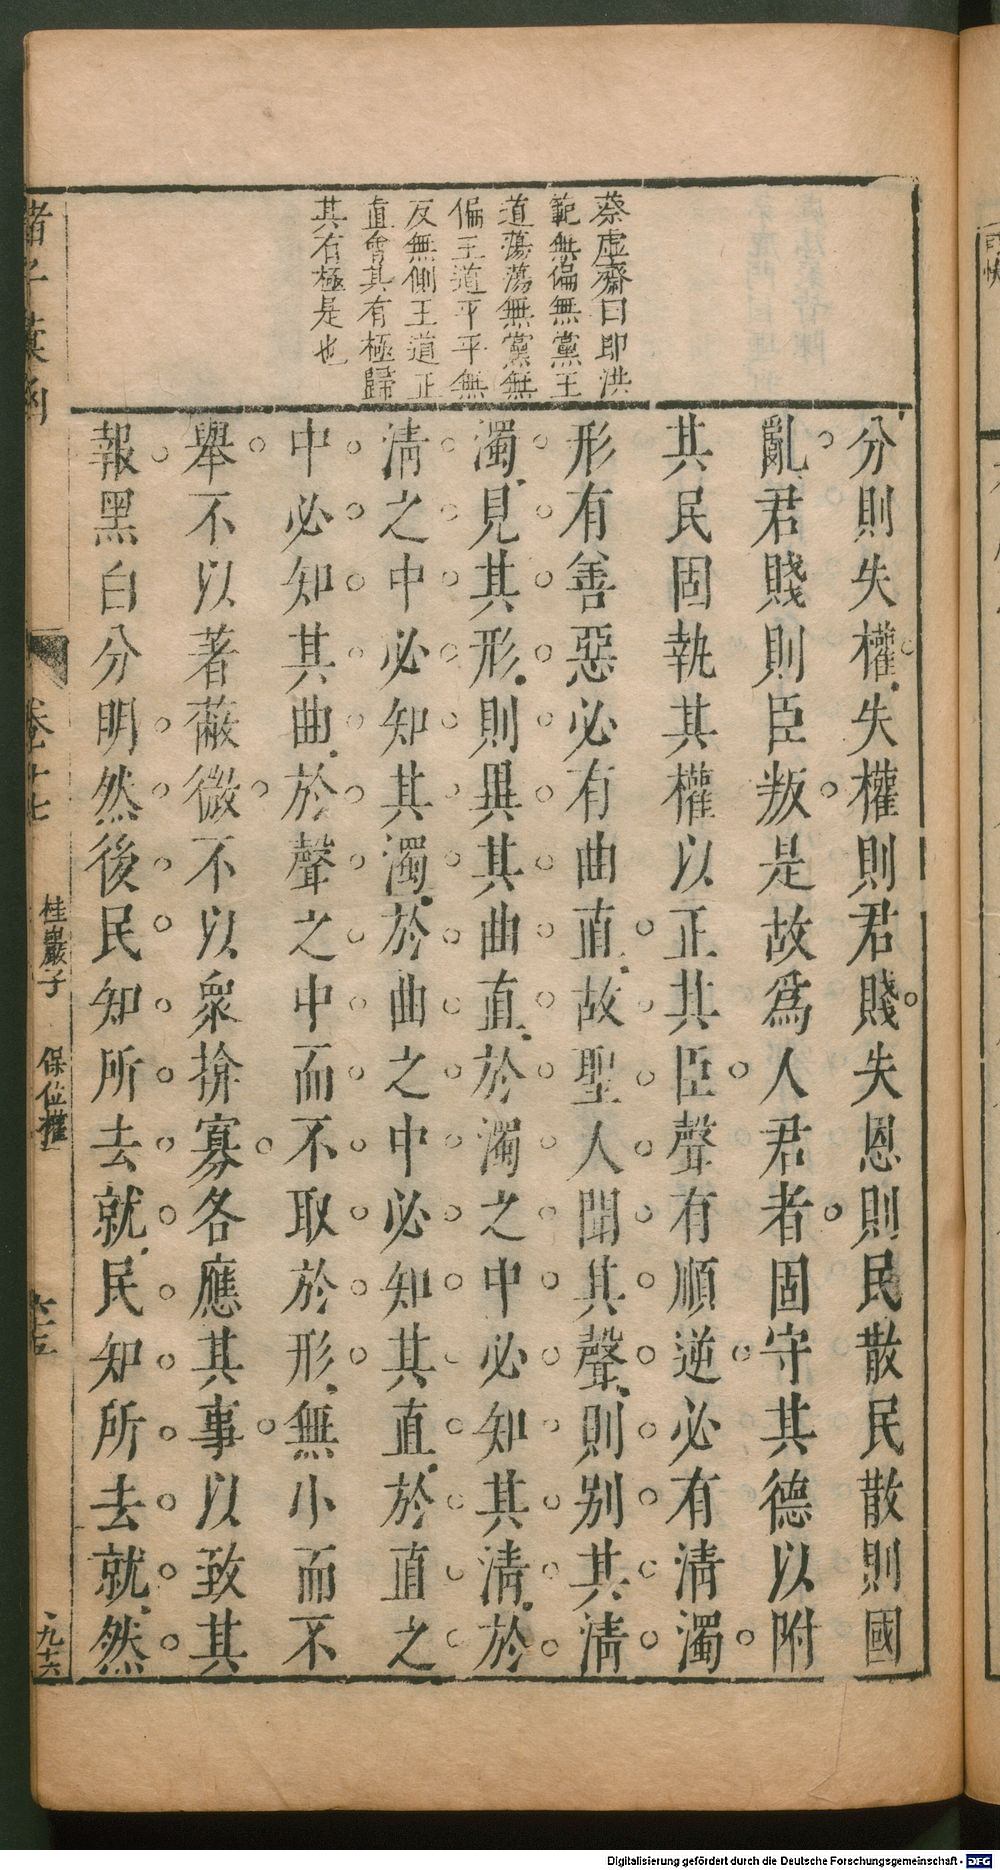 蔡虛齋曰即洪
範無偏無黨王
道蕩蕩無黨無
偏王道平平無
反無側王道正
直會其有極歸
其有極是也
分則失權失權則君賤失恩則民散民散則國
亂君賤則臣叛是故爲人君者固守其德以附
其民固執其權以正其臣聲有順逆必有淸濁
形有善惡必有曲直故聖人聞其聲則別其淸
濁見其形則異其曲直於濁之中必知其淸於
淸之中必知其濁於曲之中必知其直於直之
中必知其曲於聲之中而不取於形無小而不
舉不以著蔽微不以衆揜寡各應其事以致其
報黑白分明然後民知所去就民知所去就然
諸子彙函
卷十七
桂巖子
保位權
六十五
九十六
Digitalisierung gefördert durch die Deutsche Forschungsgemeinschaft - DFG